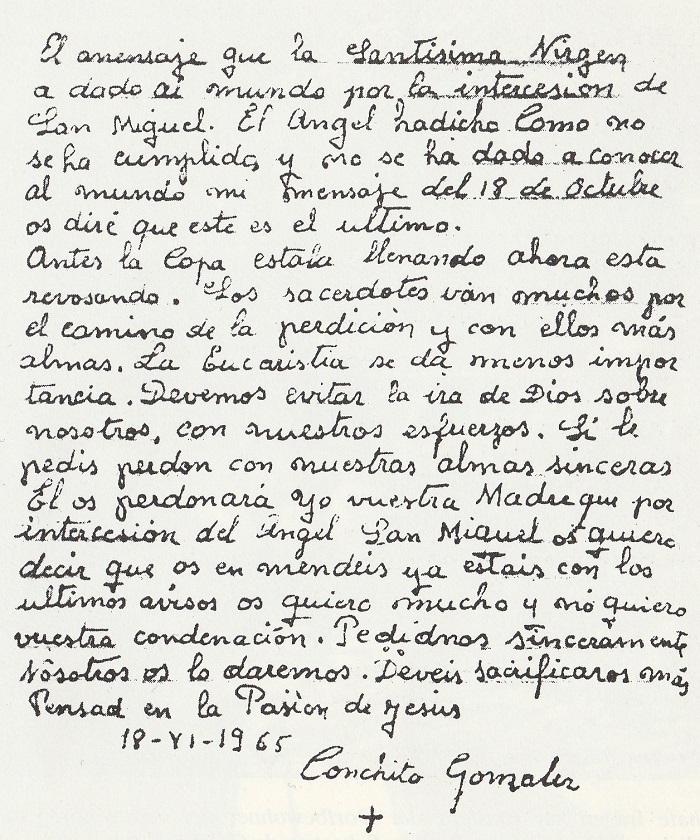 El mensaje que la Santisima Virgen
a dado al mundo por la intercesion de
San Miguel. El Angel hadicho Como no
se ha cumplido, y no se ha dado a conocer
al mundo mi mensaje del 18 de Octubre
os diré que este es el ultimo.
Antes la Copa estaba llenando ahora esta
revosando. Los sacerdotes van muchos por
el camino de la perdición y con ellos más
almas. La Eucaristia se da menos impor
tancia. Devemos evitar la ira de Dios sobre
nosotros, con nuestros esfuerzos. Si le
pedis perdon con nuestras almas sinceras
Él os perdonará yo vuestra Madre que por
intercesión del Angel San Miguel os quiero
decir que os en mendeis ya estais con los
ultimos avisos os quiero mucho y no quiero
vuestra condenación. Pedidnos sinceramente
Nosotros os lo daremos. Deveis sacrificaros más
Pensad en la Pasion de Jesús
18-VI-1965
Conchita Gonzalez